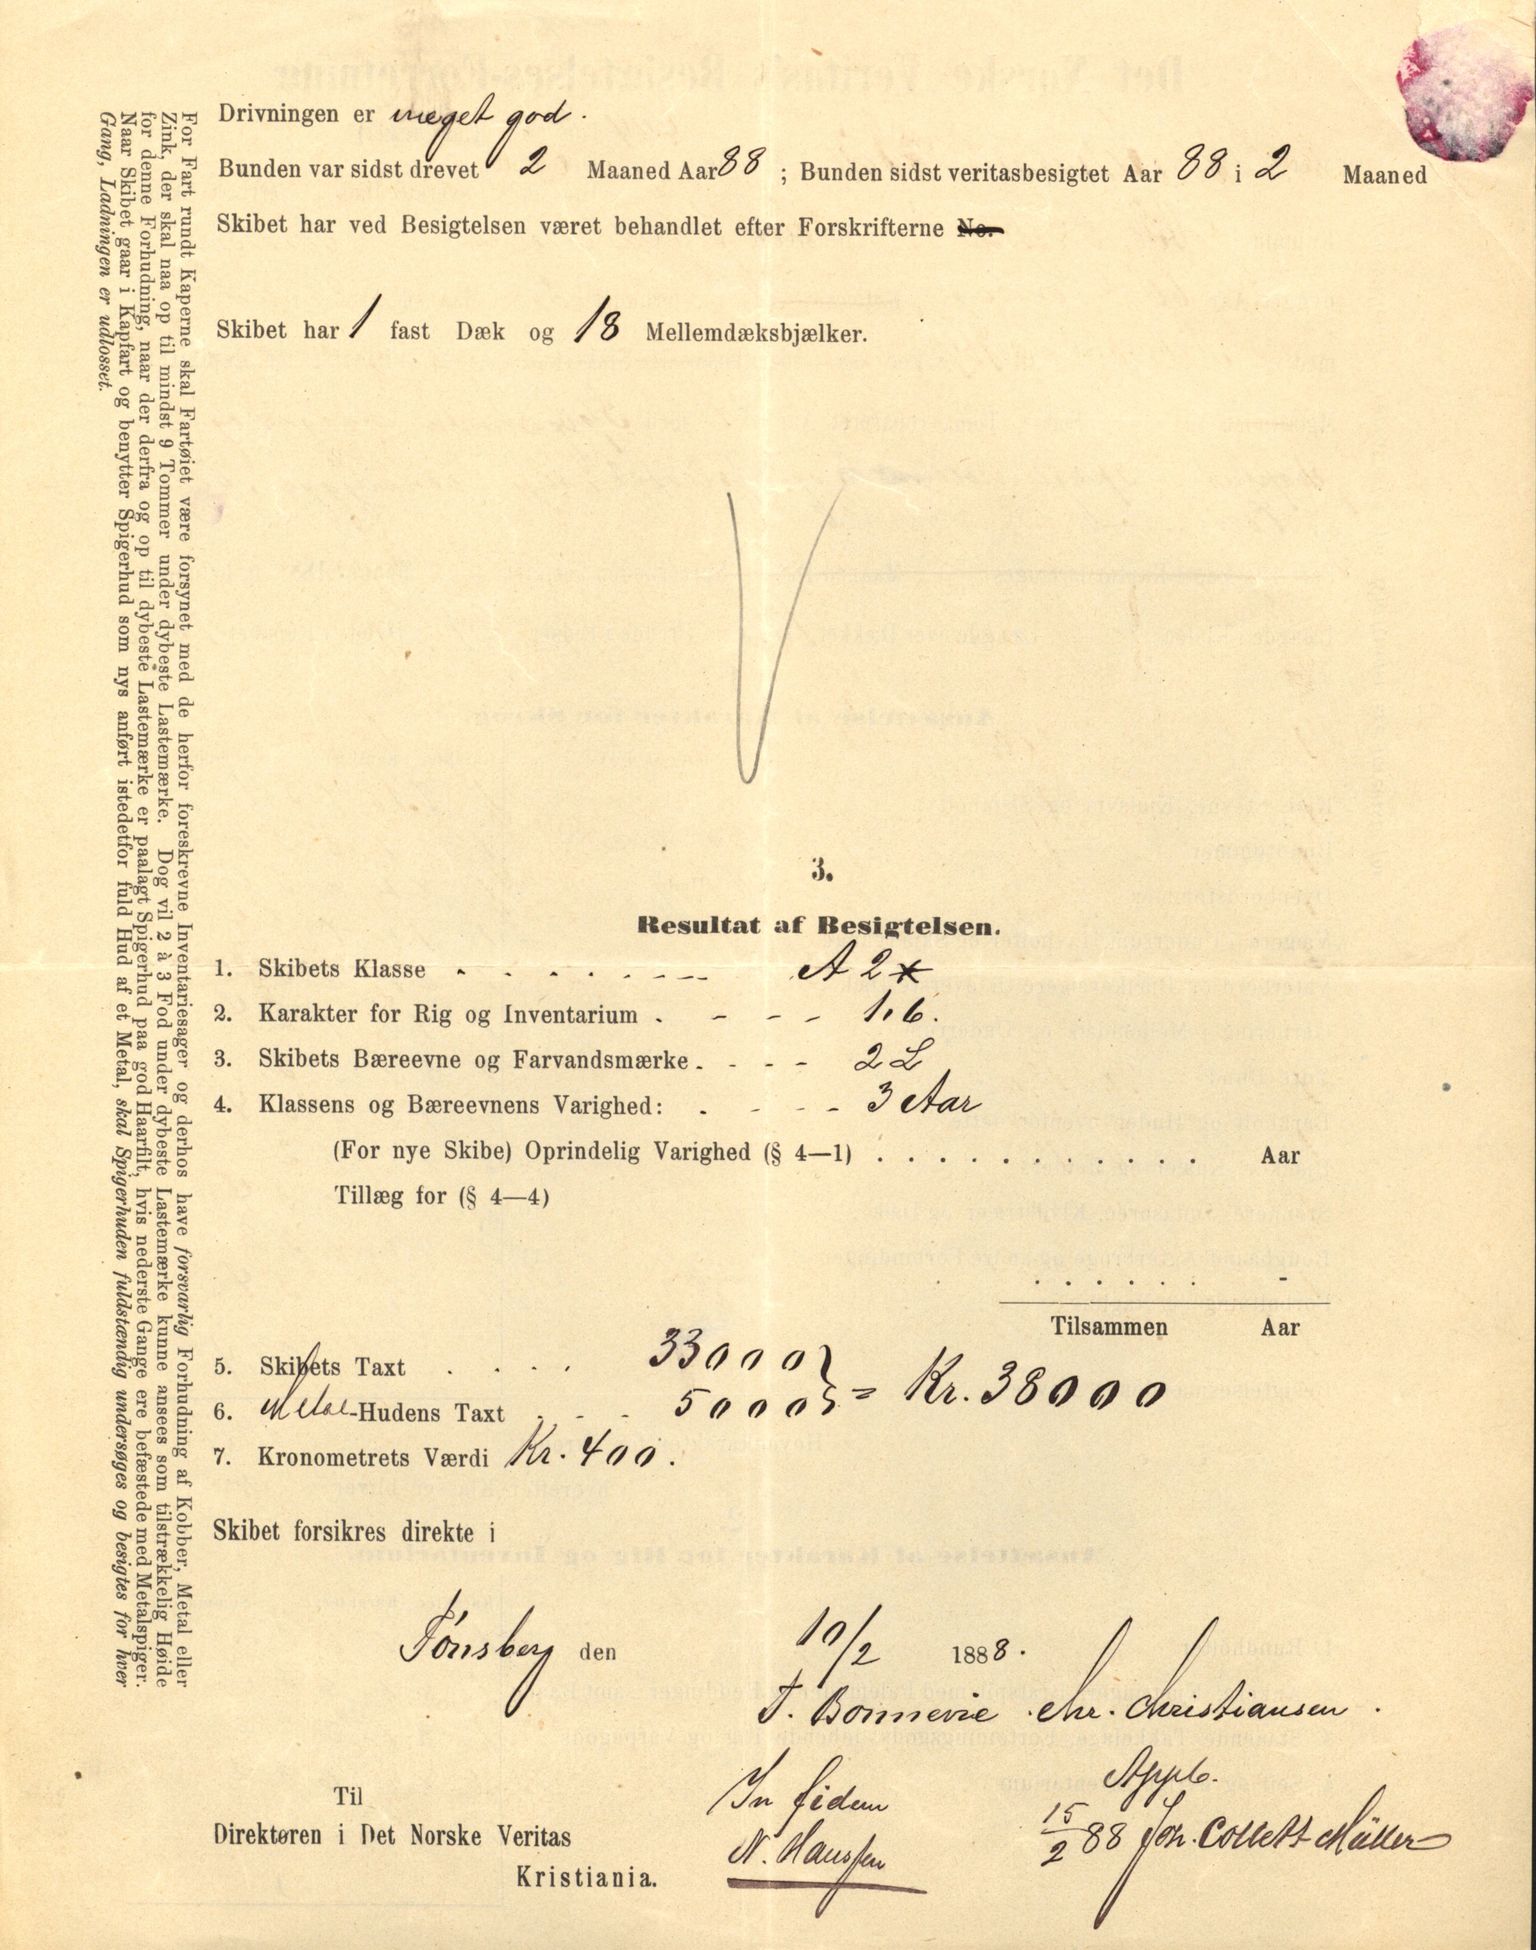 Drivningen er meget god.
Bunden var sidst drevet 2 Maaned Aar 88 ; Bunden sidst veritasbesigtet Aar 88 i 2 Maaned
Skibet har ved Besigtelsen været behandlet efter Forskrifterne No.
Skibet har 1 fast Dæk og 18 Mellemdæksbjælker.
3.
Resultat af Besigtelsen.
1. Skibets Klasse . . . . . . . A 2 *
2. Karakter for Rig og Inventarium . - - - 1.6.
3. Skibets Bæreevne og Farvandsmærke. - - - 2 L
4. Klassens og Bæreevnens Varighed: . - - - 3 Aar
(For nye Skibe) Oprindelig Varighed (§ 4—1) . . . . . . . . . . . . Aar
Tillæg for (§ 4—4)
. . . . . . . -
Tilsammen Aar
5. Skibets Taxt . . . . 33000
6. Metal-Hudens Taxt . - - 5000 = Kr. 38000
7. Kronometrets Værdi Kr. 400.
Skibet forsikres direkte i
Tönsberg den 10/2 1888.
T. Bonnevie . Chr. Christiansen .
Til
Direktøren i Det Norske Veritas
Kristiania.
In fidem
N. Hanssen
Appb.
15/2 88 Joh. Collett Müller
For Fart rundt Kaperne skal Fartøiet være forsynet med de herfor foreskrevne Inventariesager og derhos have forsvarlig Forhudning af Kobber, Metal eller
Zink, der skal naa op til mindst 9 Tommer under dybeste Lastemærke. Dog vil 2 à 3 Fod under dybeste Lastemærke kunne ansees som tilstrækkelig Høide
for denne Forhudning, naar der derfra og op til dybeste Lastemærke er paalagt Spigerhud paa god Haarfilt, hvis nederste Gange ere befæstede med Metalspiger.
Naar Skibet gaar i Kapfart og benytter Spigerhud som nys anført istedetfor fuld Hud af et Metal, skal Spigerhuden fuldstændig undersøges og besigtes for hver
Gang, Ladningen er udlosset.